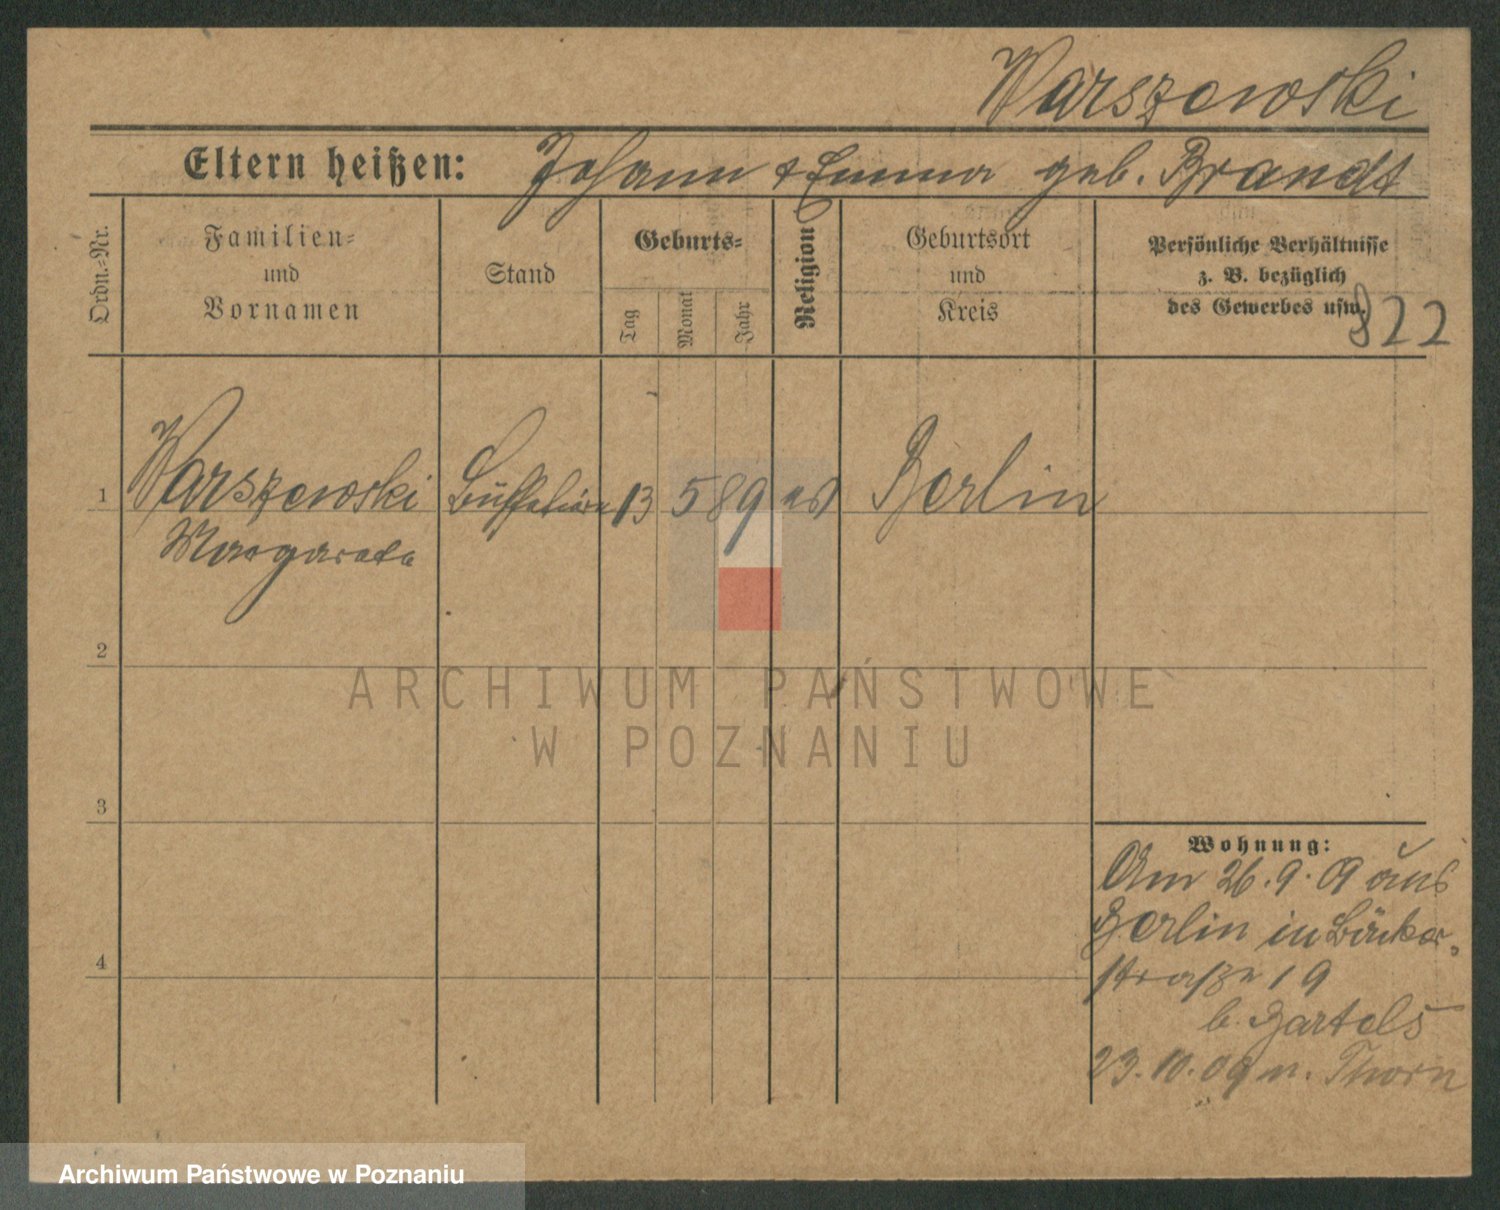 Warszewski
Eltern heißen: Johann & Emma geb. Brandt
Ordn.-Nr.
Familien-
und
Vornamen
Stand
Geburts-
Tag
Monat
Jahr
Religion
Geburtsort
und
Kreis
Persönliche Verhältnisse
z. B. bezüglich
des Gewerbes usw.
822
1 Warszewski 13 5 89 Berlin
Margarete
2
3
4
Wohnung:
Am 26.9.09 aus
Berlin in Bäcker-
straße 19
b. Bartels
23.10.09 n. Thorn
ARCHIWUM PAŃSTWOWE
W POZNANIU
Archiwum Państwowe w Poznaniu